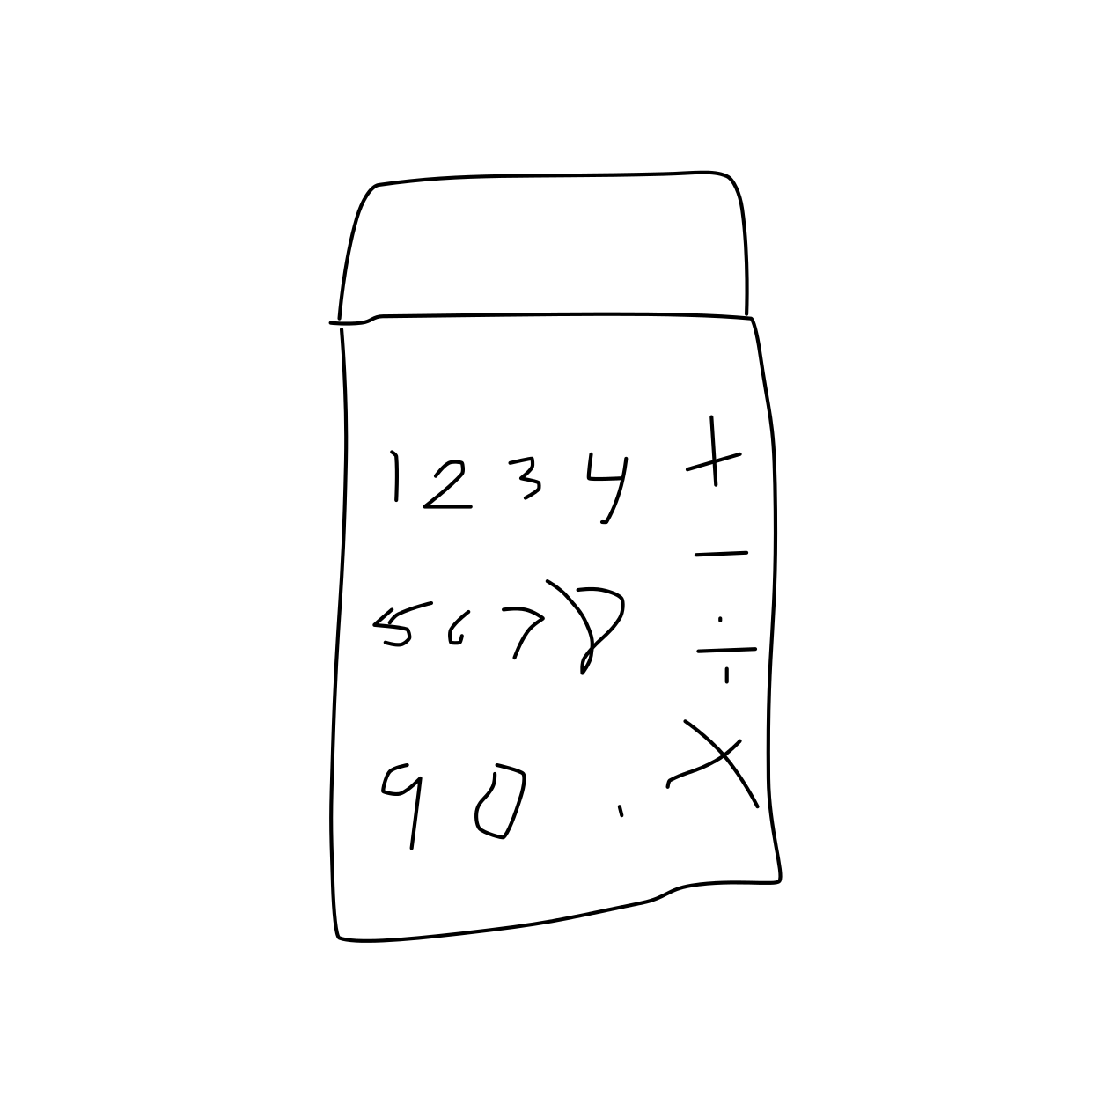 1 2 3 4 +
−
5 6 7 8 ÷
9 0 . ×